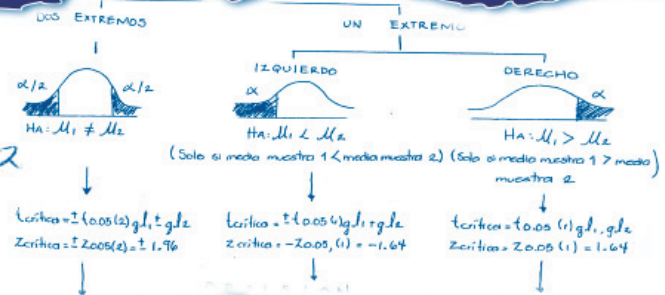 DOS EXTREMOS
UN EXTREMO
IZQUIERDO
DERECHO
α/2 α/2
α
α
HA: M₁ ≠ M₂
HA: M₁ < M₂
HA: M₁ > M₂
2
(Solo si media muestra 1 < media muestra 2)
(Solo si media muestra 1 > media
muestra 2)
tcrítica = ± t0.05(2)gl₁ ± gl₂
tcrítica = ± t0.05(1)gl₁ + gl₂
tcrítica = t0.05 (1)gl₁, gl₂
Zcrítica = ± Z005(2) = ± 1.96
Zcrítica = -Z0.05, (1) = -1.64
Zcrítica = Z0.05 (1) = 1.64